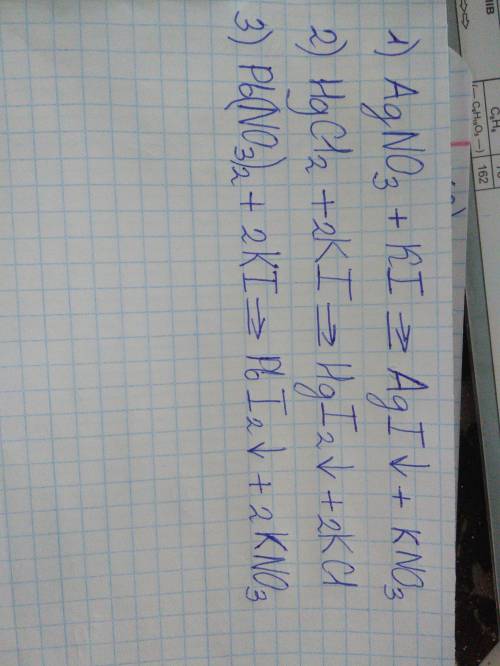 1) AgNO3 + KI ⇒ AgI↓ + KNO3
2) HgCl2 + 2KI ⇒ HgI2↓ + 2KCl
3) Pb(NO3)2 + 2KI ⇒ PbI2↓ + 2KNO3
162